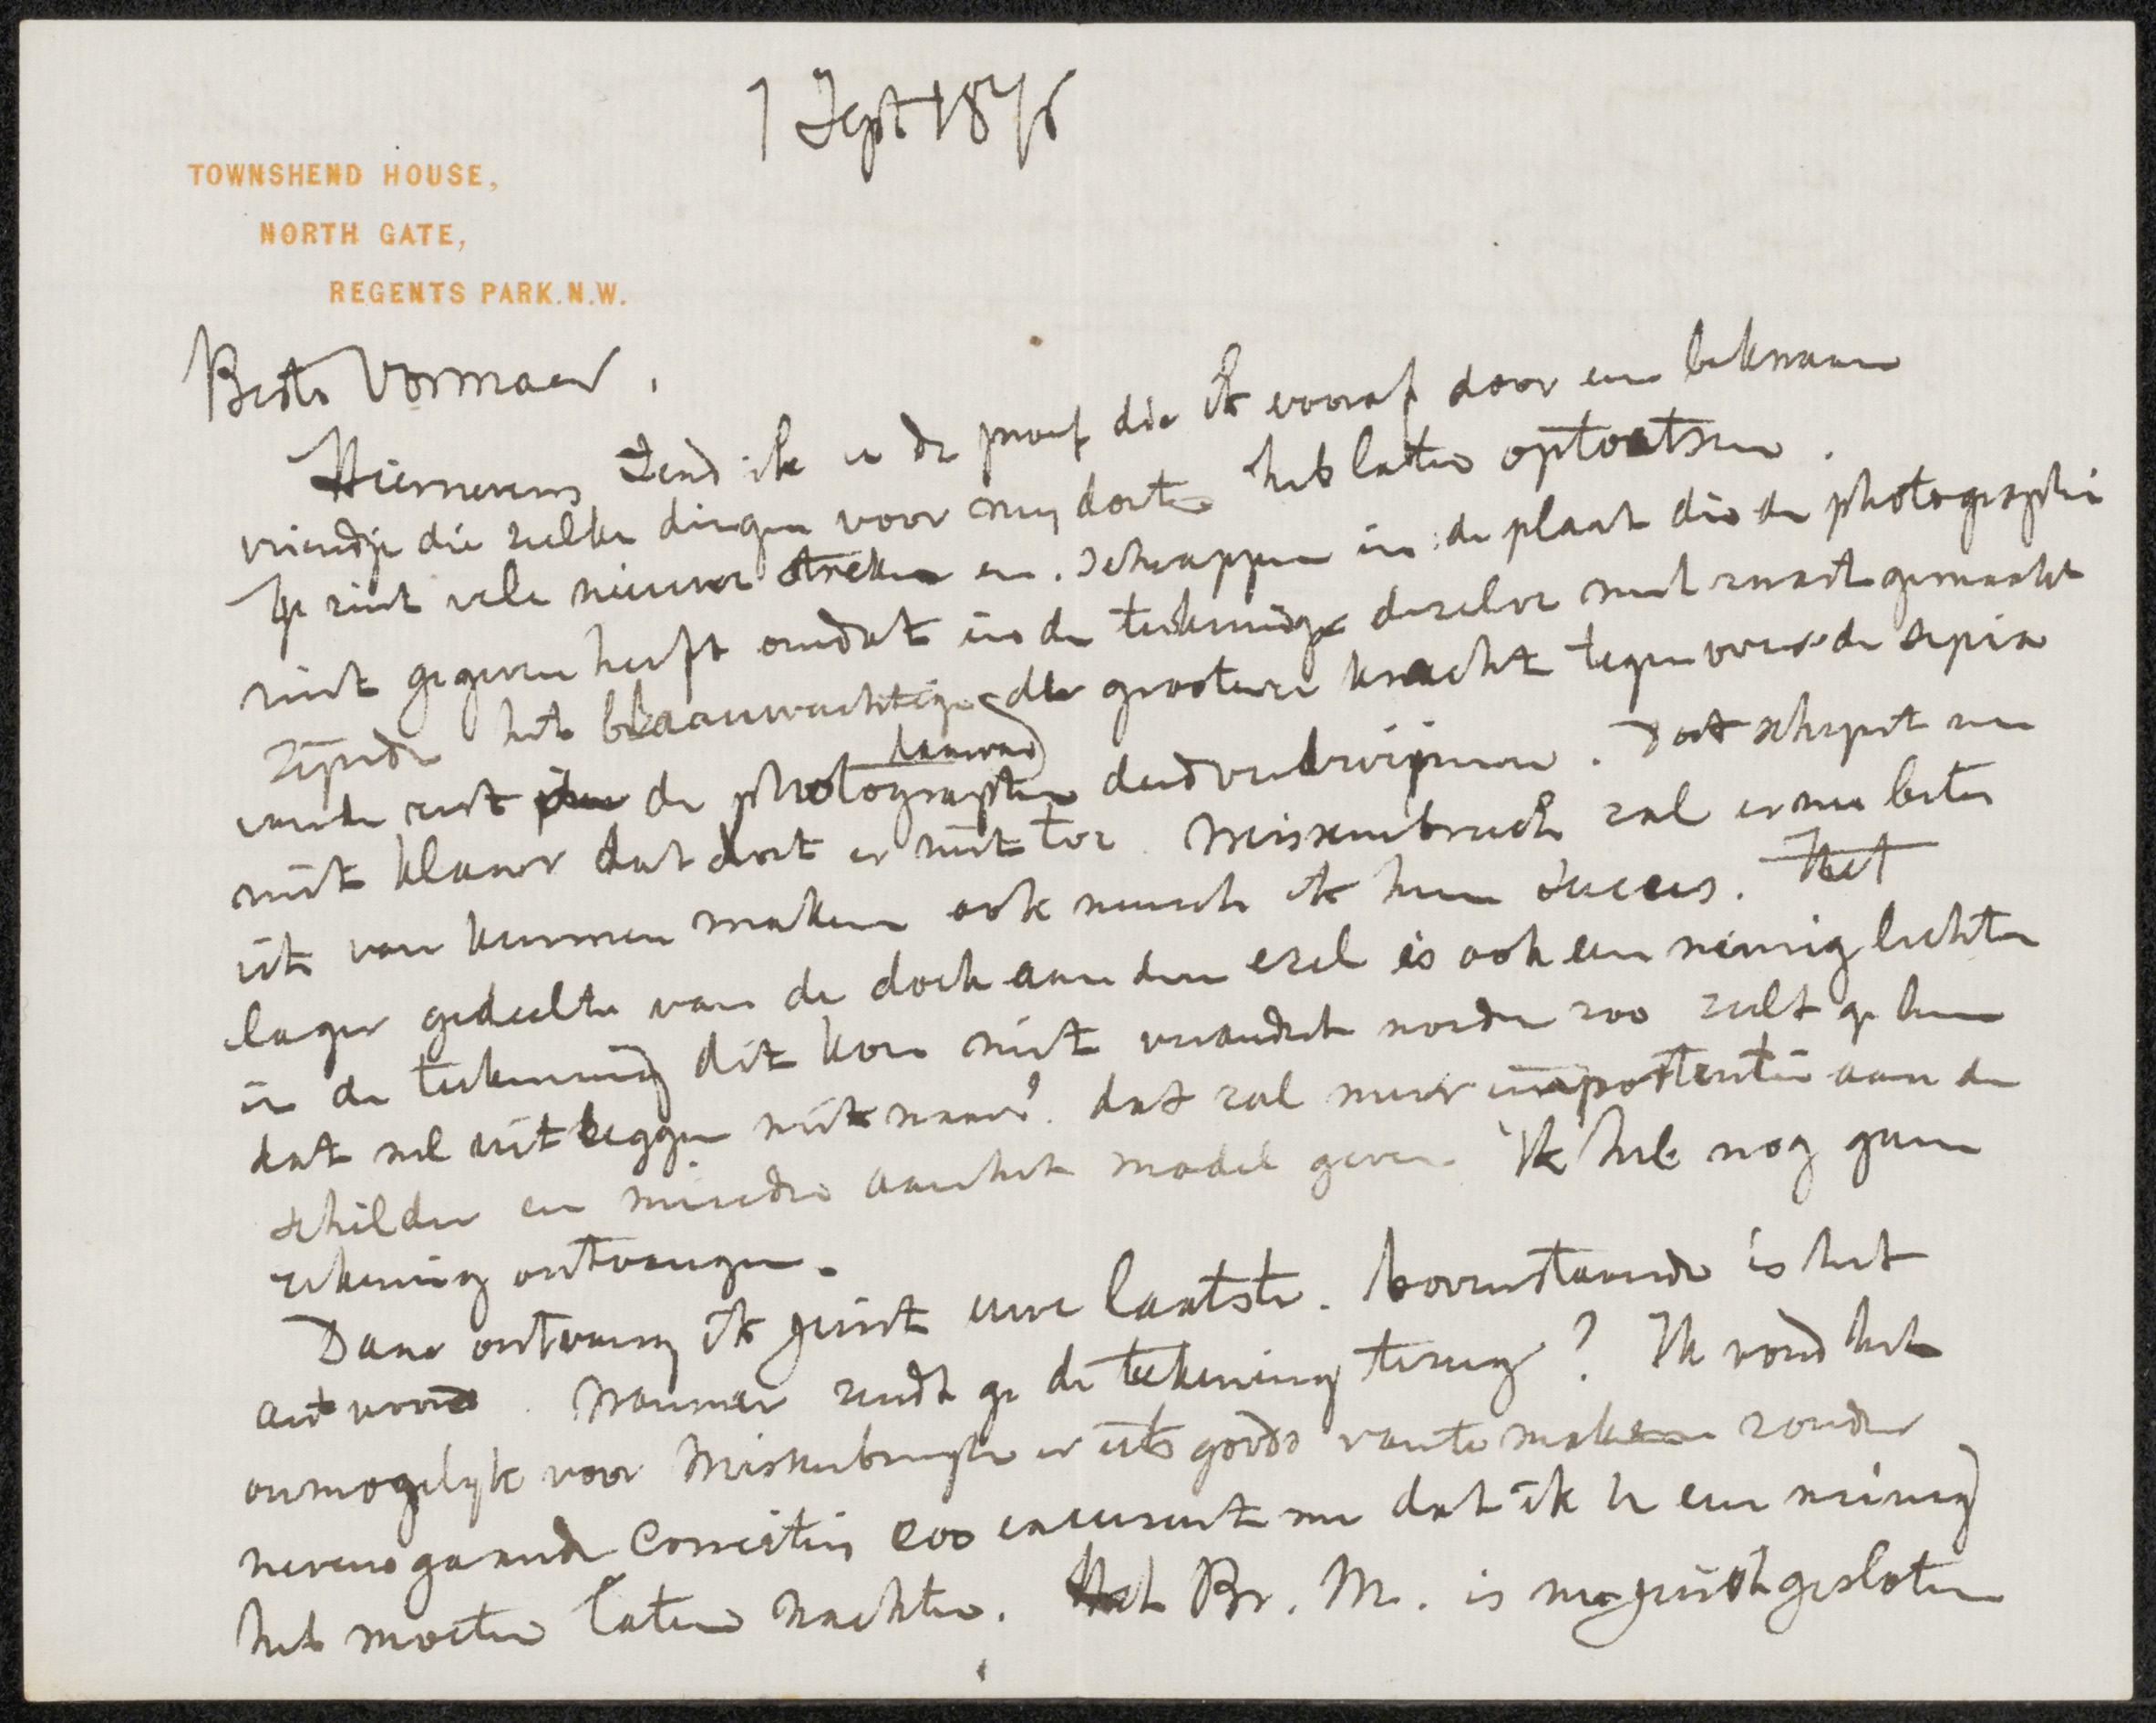 7 Sept 1876
TOWNSHEND HOUSE,
NORTH GATE,
REGENTS PARK. N.W.
Beste Vosmaer.
Hiernevens zend ik u de proef die ik vooraf door een bekwaam
vriendje die zulke dingen voor my doet heb laten optoetsen.
Ge ziet vele nieuwe streken en schrappen in de plaat die de photographie
niet gegeven heeft omdat in de tekening dezelve met zwart gemaakt
zynde het blaauwachtige der grootere kracht tegenover de sepia
daarvan
van de rest de photographie deed verdwijnen. Dat schynt me
niet klaar dat doet er niet toe. Meissenbruch zal er nu beter
iets van kunnen maken ook wensch ik hem succes. Het
lager gedeelte van de doek aan den ezel is ook een weinig lichter
in de tekening dit kon niet veranderd worden zoo zult ge hem
dat wel uitleggen niet waar? dat zal meer importentie aan de
schilder en minder aan het model geven. Ik heb nog geen
rekening ontvangen.
Daar ontvang ik juist uwe laatste. bovenstaande is het
antwoord. Wanneer zendt ge de tekening terug? Ik vond het
onmogelyk voor Meissenbruch er iets goeds van te maken zonder
nevensgaande correctie zoo excuseert me dat ik U een weinig
heb moeten laten wachten. Het Br. M. is nu juist gesloten